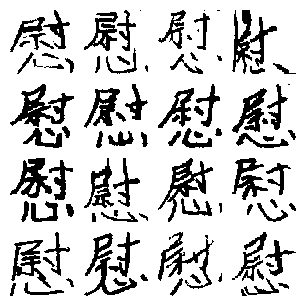 慰慰慰慰
慰慰慰慰
慰慰慰慰
慰慰慰慰